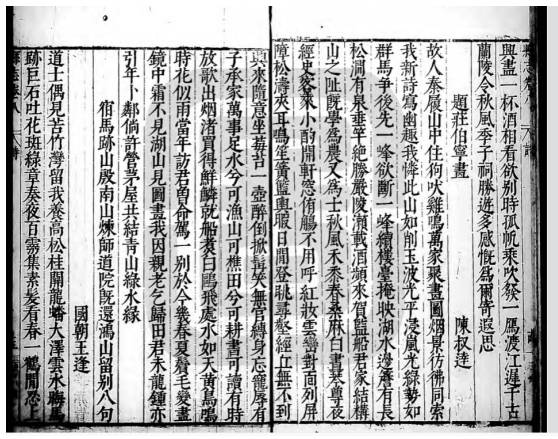 興盡一杯酒相看欲別時孤帆乘吹發一鴈渡江遲千古
蘭陵令秋風季子祠勝遊多感慨為爾奇遐思
題莊伯寧畫 陳叔逵
故人秦履山中住狗吠雞鳴萬家聚畫圖烟景仿彿同索
我新詩寫幽趣我憐此山如削玉波光平浸嵐光綠勢如
群馬爭後先一峰欲斷一峰續樓臺掩映湖水邊舊有長
松澗有泉垂竿絕勝嚴陵瀨載酒頻來賀監船君家結構
山之阯既學為農又為士秋風禾黍春桑麻白晝琴尊夜
經史客來小酌開軒窓侑觴不用呼紅妝雲巒對面列屏
障松濤夾耳鳴笙簧籃輿暇日閒登眺尋壑經丘無不到
興來隨意坐莓苔一壺醉倒掀髯笑無官縛身忘寵辱有
子承家萬事足水兮可漁山可樵田兮可耕書可讀有時
放歌出烟渚買得鮮鱗就船煮白鷗飛處水如天黃鳥鳴
時花似雨當年訪君曽命駕一別於今幾春夏鬢毛變盡
鏡中霜不見湖山見圖畫我因親老乞歸田君未龍鍾亦
引年卜鄰倘許營茅屋共結青山綠水緣
宿馬跡山殷南山煉師道院既還鴻山留別八句
國朝王逢
道士偶見苦竹灣留我養高松桂開龍蟠大澤雲水晦馬
跡巨石吐花斑綠章奏夜百霧集素髮有春鶴閒忍上